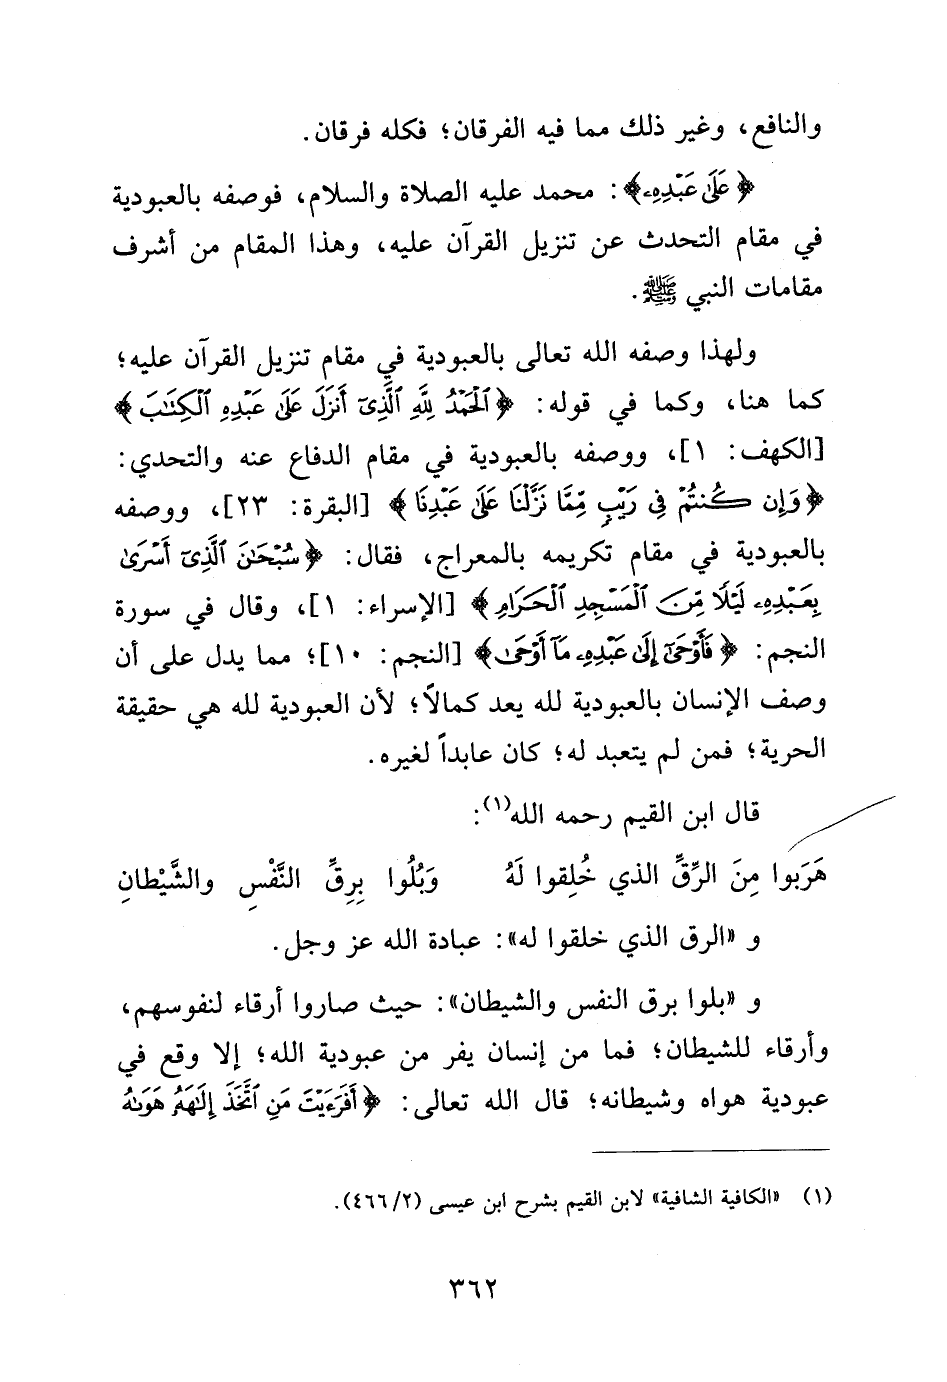 والنافع، وغير ذلك مما فيه الفرقان؛ فكله فرقان.
﴿عَلَىٰ عَبْدِهِۦ﴾: محمد عليه الصلاة والسلام، فوصفه بالعبودية
في مقام التحدث عن تنزيل القرآن عليه، وهذا المقام من أشرف
مقامات النبي ﷺ.
ولهذا وصفه الله تعالى بالعبودية في مقام تنزيل القرآن عليه؛
كما هنا، وكما في قوله: ﴿ٱلْحَمْدُ لِلَّهِ ٱلَّذِىٓ أَنزَلَ عَلَىٰ عَبْدِهِ ٱلْكِتَـٰبَ﴾
[الكهف: ١]، ووصفه بالعبودية في مقام الدفاع عنه والتحدي:
﴿وَإِن كُنتُمْ فِى رَيْبٍ مِّمَّا نَزَّلْنَا عَلَىٰ عَبْدِنَا﴾ [البقرة: ٢٣]، ووصفه
بالعبودية في مقام تكريمه بالمعراج، فقال: ﴿سُبْحَـٰنَ ٱلَّذِىٓ أَسْرَىٰ
بِعَبْدِهِۦ لَيْلًا مِّنَ ٱلْمَسْجِدِ ٱلْحَرَامِ﴾ [الإسراء: ١]، وقال في سورة
النجم: ﴿فَأَوْحَىٰٓ إِلَىٰ عَبْدِهِۦ مَآ أَوْحَىٰ﴾ [النجم: ١٠]؛ مما يدل على أن
وصف الإنسان بالعبودية لله يعد كمالاً؛ لأن العبودية لله هي حقيقة
الحرية؛ فمن لم يتعبد له؛ كان عابداً لغيره.
قال ابن القيم رحمه الله(١):
هَرَبوا مِنَ الرِّقِّ الذي خُلِقوا لَهُ وَبُلُوا بِرِقِّ النَّفْسِ والشَّيْطانِ
و «الرق الذي خلقوا له»: عبادة الله عز وجل.
و «بلوا برق النفس والشيطان»: حيث صاروا أرقاء لنفوسهم،
وأرقاء للشيطان؛ فما من إنسان يفر من عبودية الله؛ إلا وقع في
عبودية هواه وشيطانه؛ قال الله تعالى: ﴿أَفَرَءَيْتَ مَنِ ٱتَّخَذَ إِلَـٰهَهُۥ هَوَىٰهُ
(١) «الكافية الشافية» لابن القيم بشرح ابن عيسى (٤٦٦/٢).
٣٦٢